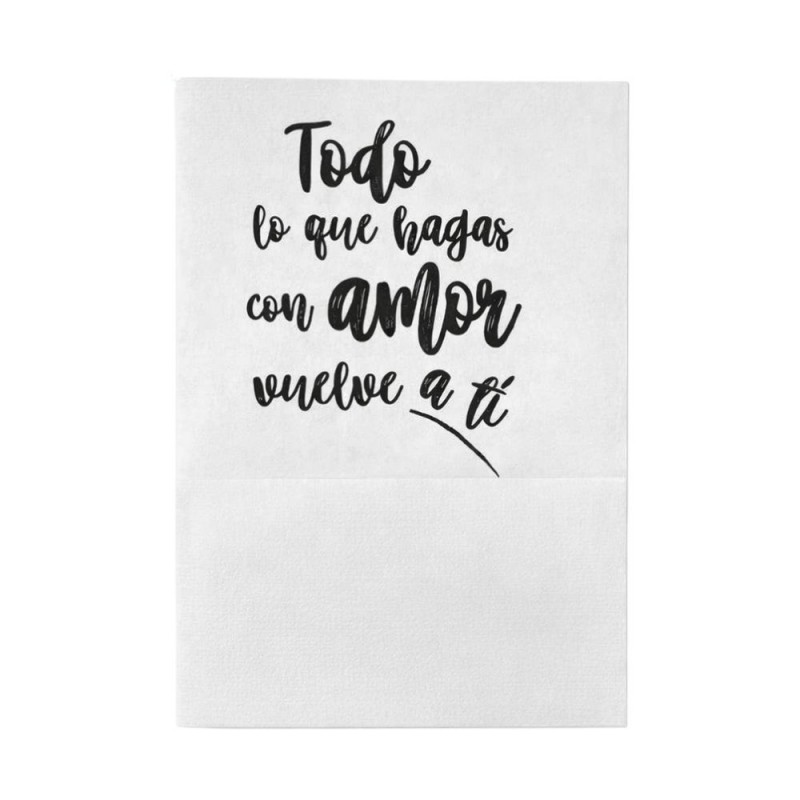 Todo
lo que hagas
con amor
vuelve a tí